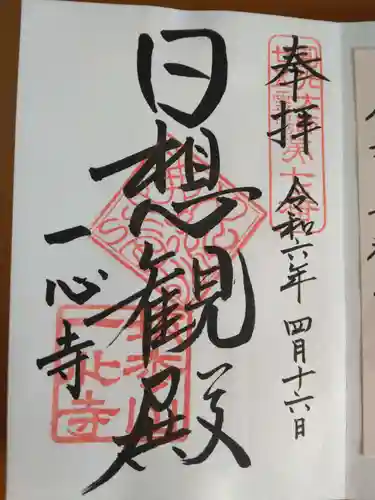 奉拝
令和六年 四月十六日
日想観殿
一心寺